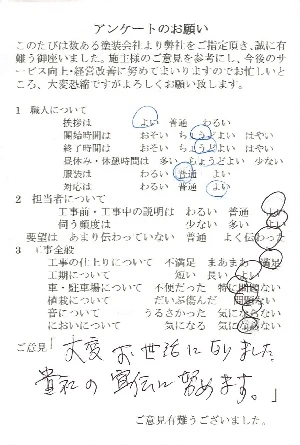 アンケートのお願い
このたびは数ある塗装会社より弊社をご指定頂き、誠に有
難う御座いました。施主様のご意見を参考にし、今後のサ
ービス向上・経営改善に努めてまいりますのでお忙しいと
ころ、大変恐縮ですがよろしくお願い致します。
1 職人について
挨拶は よい 普通 わるい
開始時間は おそい ちょうどよい はやい
終了時間は おそい ちょうどよい はやい
昼休み・休憩時間は 多い ちょうどよい 少ない
服装は わるい 普通 よい
対応は わるい 普通 よい
2 担当者について
工事前・工事中の説明は わるい 普通
伺う頻度は 少ない 多い
要望は あまり伝わっていない 普通 よく伝わった
3 工事全般
工事の仕上りについて 不満足 まあまあ 満足
工期について 短い 長い よい
車・駐車場について 不便だった 特に問題ない
植栽について だいぶ傷んだ 問題ない
音について うるさかった 気にならない
においについて 気になる 気にならない
ご意見「大変お世話になりました
貴社の宣伝に努めます。」
ご意見有難うございました。